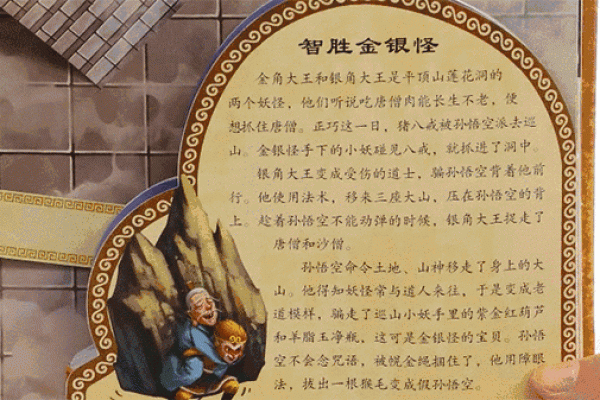 智胜金银怪
金角大王和银角大王是平顶山莲花洞的
两个妖怪，他们听说吃唐僧肉能长生不老，便
想抓住唐僧。正巧这一日，猪八戒被孙悟空派去巡
山。金银怪手下的小妖碰见八戒，就抓进了洞中。
银角大王变成受伤的道士，骗孙悟空背着他前
行。他使用法术，移来三座大山，压在孙悟空的背
上。趁着孙悟空不能动弹的时候，银角大王捉走了
唐僧和沙僧。
孙悟空命令土地、山神移走了身上的大
山。他得知妖怪常与道人来往，于是变成老
道模样，骗走了巡山小妖手里的紫金红葫芦
和羊脂玉净瓶，这可是金银怪的宝贝。孙悟
空不会念咒语，被幌金绳捆住了，他用障眼
法，拔出一根猴毛变成假孙悟空。